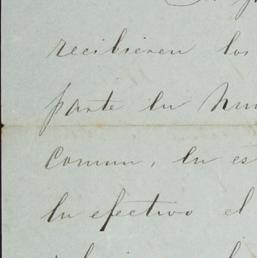 recibieren los
parte en
comun, en es
en efectivo el